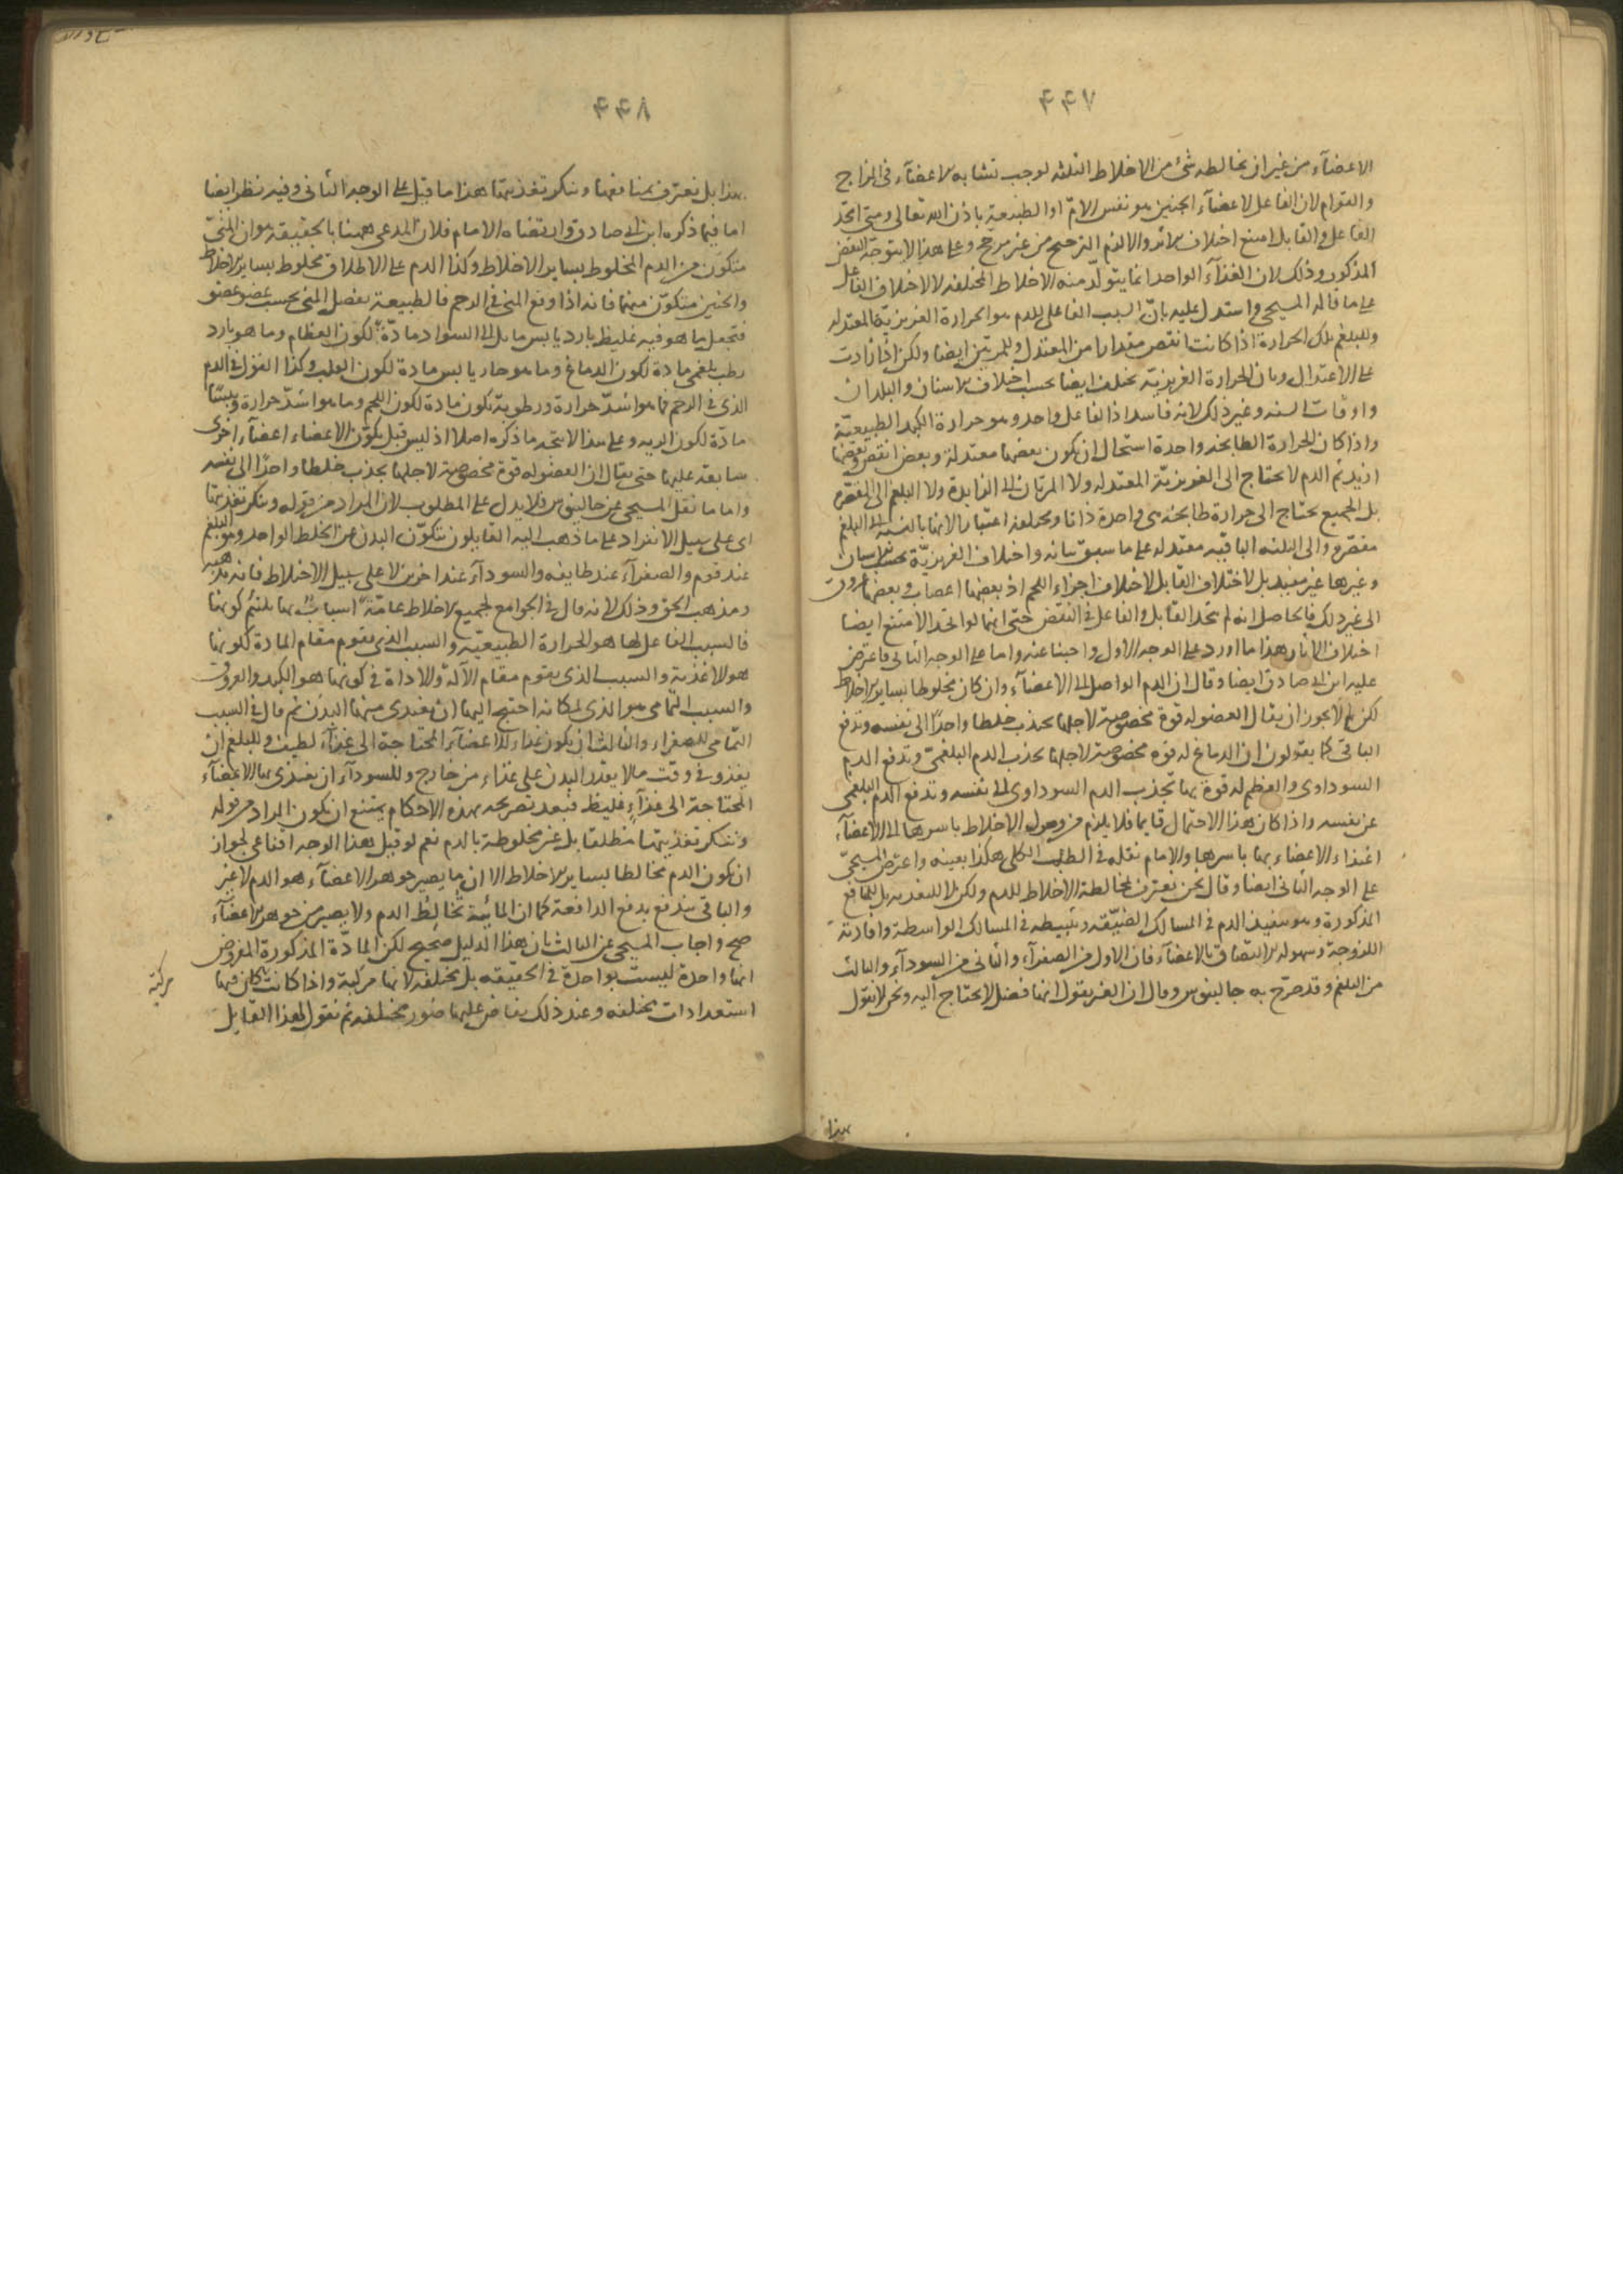 ۴۴۷
الاعضآء من غير ان يخالطه شئ من الاخلاط الثلثه لوجب تشابه الاعضآء فى المزاج
والقوام لان الفاعل لاعضآء الجنين هو نفس الامّ او الطبيعة باذن الله تعالى ومتى اتحد
الفاعل والقابل امتنع اختلاف الاثر والالزم الترجيح من غير مرجح وعلى هذا لا يتوجه النقض
المذكور وذلك لان الغذآء الواحد انما يتولد منه الاخلاط المختلفه لا لاختلاف الفاعل
على ما قاله المسيحى واستدل عليه بانّ السبب الفاعلى للدم هو الحرارة الغريزيّة المعتدله
وللبلغم تلك الحرارة اذا كانت انقص مقدارا من المعتدل وللمرتين ايضا ولكن اذا زادت
على الاعتدال وبان الحرارة الغريزيّة تختلف ايضا بحسب اختلاف الاسنان والبلدان
واوقات السنه وغير ذلك لانه فاسد اذ الفاعل واحد وهو حرارة الكبد الطبيعيّة
واذا كان الحرارة الطابخه واحدة استحال ان يكون بعضها معتدلة وبعض انقص وبعضها
ازيد ثم الدم لا يحتاج الى الغريزيّة المعتدله ولا المرتان الى الزايدة ولا البلغم الى المقصّره
بل الجميع يحتاج الى حرارة طابخه هى واحدة ذاتا ومختلفه اعتبارا لانها بالنسبة الى البلغم
مقصّره والى الثلثه الباقيه معتدله على ما سبق بيانه واختلاف الغريزيّة بحسب الاسنان
وغيرها غير مفيد بل لاختلاف القابل لاختلاف اجزاء اللحم اذ بعضها اعصاب وبعضها عروق
الى غير ذلك فالحاصل انه لم يتحد القابل والفاعل فى النقض حتى انهما لو اتحدا لامتنع ايضا
اختلاف الاثار هذا ما اورد على الوجه الاول واجبنا عنه واما على الوجه الثانى فاعترض
عليه ابن ابى صادق ايضا وقال ان الدم الواصل الى الاعضآء وان كان مخلوطا بساير الاخلاط
لكن لم لا يجوز ان يقال العضو له قوة مخصوصة لاجلها يجذب خلطا واحدًا الى نفسه وتدفع
الباقى كما يقولون ان الدماغ له قوه مخصوصة لاجلها يجذب الدم البلغمىّ وتدفع الدم
السوداوى والعظم له قوة بها تجذب الدم السوداوى الى نفسه وتدفع الدم البلغمى
عن نفسه واذا كان هذا الاحتمال قايما فلا يلزم من وصول الاخلاط باسرها الى الاعضآء
اغتذاء الاعضاء بها باسرها والامام نقله فى الطب الكلى هكذا بعينه واعترض المسيحىّ
على الوجه الثانى ايضا وقال نحن نعترف بمخالطة الاخلاط للدم ولكن لا للتغذيه بل للمنافع
المذكورة وهو تنفيذ الدم فى المسالك الضيّقه وتثبيطه فى المسالك الواسطة وافادته
اللزوجة وسهولة الالتصاق بالاعضآء فان الاول من الصفرآء والثانى من السودآء والثالث
من البلغم وقد صرّح به جالينوس وقال ان الغير يقول انها فضل لا يحتاج اليه ونحن لا نقول
بهذا
۴۴۸
بهذا بل نعترف بمنافعها وننكر تغذيتها هذا ما قيل على الوجه الثانى وفيه نظر ايضا
اما فيما ذكره ابن ابى صادق وارتضاه الامام فلان المدعى ههنا بالحقيقة هو ان المنىّ
متكون من الدم المخلوط بساير الاخلاط وكذا الدم على الاطلاق مخلوط بساير الاخلاط
والجنين متكوّن منهما فانه اذا وقع المنى فى الرحم فالطبيعة تفصل المنى بحسب عضو عضو
فتجعل ما هو فيه غليظ بارد يابس مايل الى السواد مادّة لكون العظام وما هو بارد
رطب بلغمى مادة لكون الدماغ وما هو حار يابس مادة لكون القلب وكذا القول فى الدم
الذى فى الرحم فما هو اشدّ حرارة ورطوبة يكون مادة لكون اللحم وما هو اشدّ حرارة ويبسًا
مادّة لكون الريه وعلى هذا لا يتجه ما ذكره اصلا اذ ليس قبل تكوّن الاعضاء اعضآء اخرى
سابقة عليها حتى يقال ان العضو له قوة مخصوصة لاجلها يجذب خلطا واحدًا الى نفسه
واما ما نقل المسيحى عن جالينوس فلا يدل على المطلوب لان المراد من قوله وننكر تغذيتها
اى على سبيل الانفراد على ما ذهب اليه القايلون بتكوّن البدن عن الخلط الواحد وهو البلغم
عند قوم والصفرآء عند طايفه والسودآء عند اخرين لا على سبيل الاختلاط فانه مذهبه
ومذهب الحق وذلك لانه قال فى الجوامع لجميع الاخلاط عامّة اسباب بها يلتئم كونها
فالسبب الفاعل لها هو الحرارة الطبيعيّه والسبب الذى يقوم مقام المادة لكونها
هو الاغذية والسبب الذى يقوم مقام الآلة والاداة فى كونها هو الكبد والعروق
والسبب التمامى هو الذى لمكانه احتيج اليها ان يغتذى منها البدن ثم قال فى السبب
التمامى للصفراء والثالث ان يكون غذاء للاعضآء المحتاجة الى غذآء لطيف وللبلغم ان
يغذو فى وقت ما لا يقدر البدن على غذاء من خارج وللسودآء ان يغتذى بها الاعضآء
المحتاجة الى غذآء غليظ فبعد تصريحه بهذه الاحكام يمتنع ان يكون المراد من قوله
وننكر تغذيتها مطلقا بل غير مخلوطة بالدم نعم لو قيل هذا الوجه اقناعى لجواز
ان يكون الدم مخالطا بساير الاخلاط الا ان ما يصير جوهر الاعضآء هو الدم لا غير
والباقى يندفع بدفع الدافعة كما ان المائية تُخالِط الدم ولا يصير من جوهر الاعضآء
صح واجاب المسيحى عن الثالث بان هذا الدليل صحيح لكن المادّة المذكورة المفروض
انها واحدة ليست بواحدة فى الحقيقه بل مختلفه لانها مركبة واذا كانت كان فيها
مركبة
استعدادات مختلفه وعند ذلك يفاض عليها صور مختلفه ثم نقول لهذا القايل